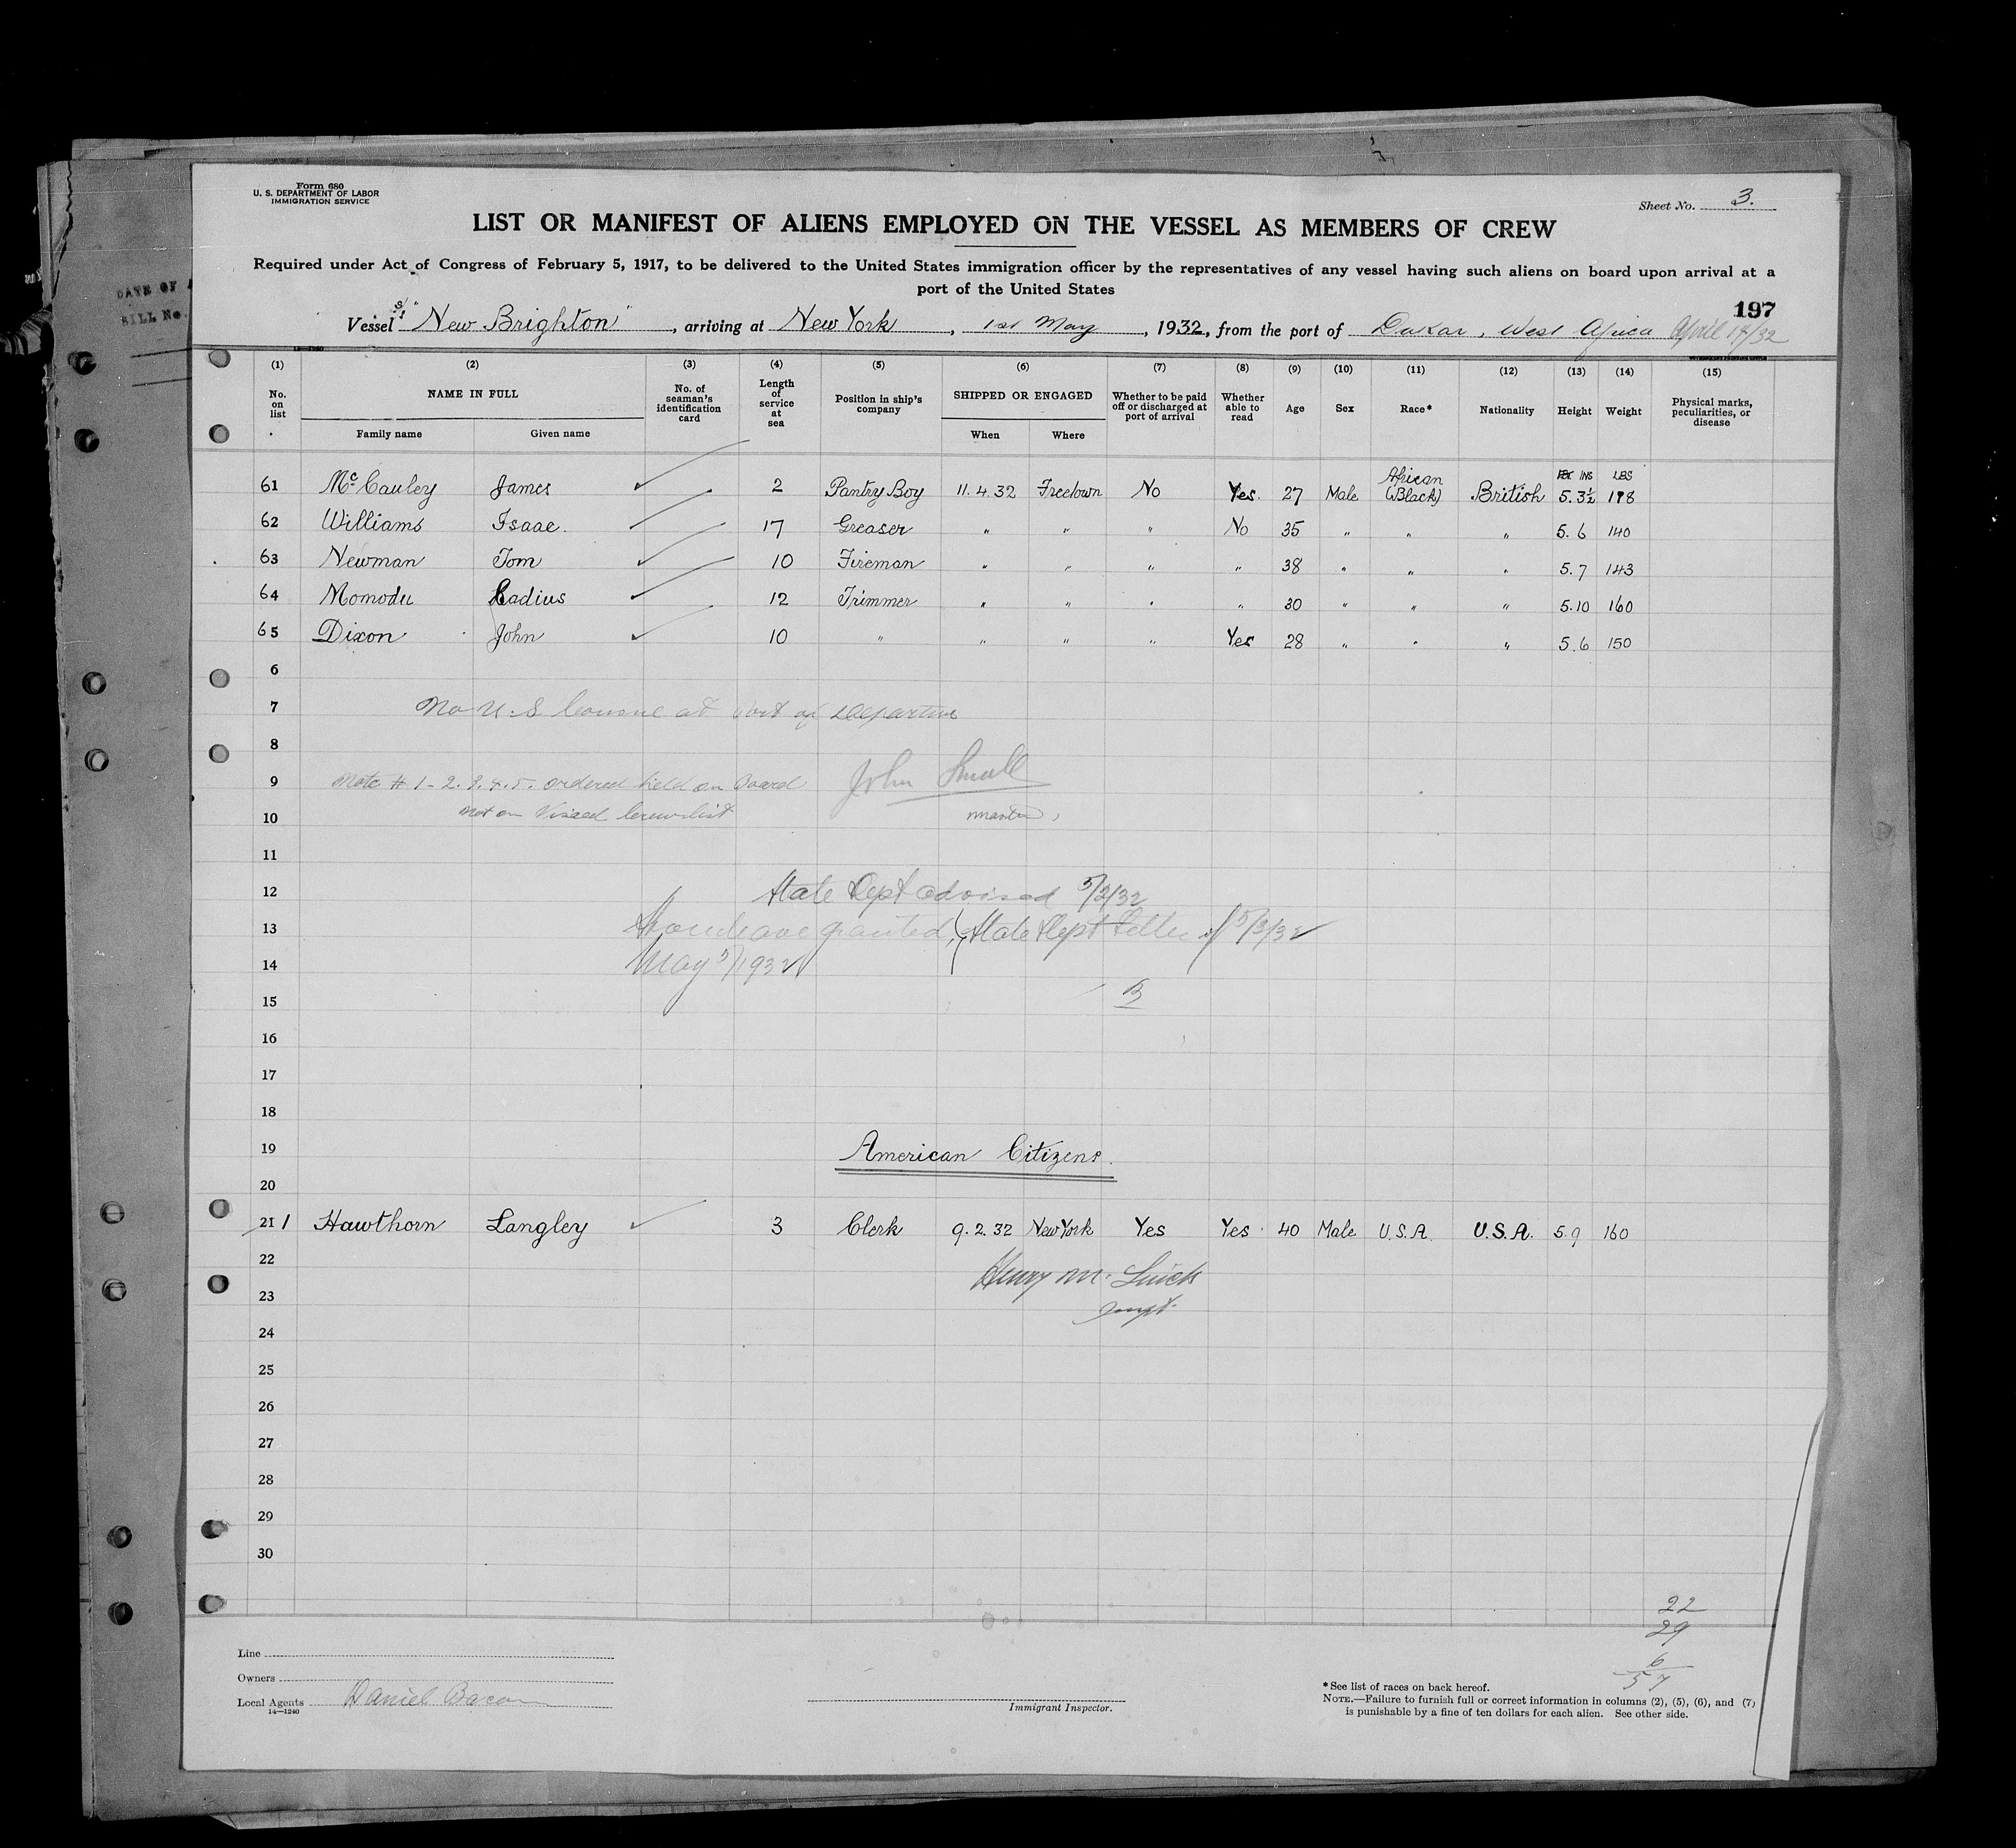 Form 680
U. S. DEPARTMENT OF LABOR
IMMIGRATION SERVICE
Sheet No. 3.
LIST OR MANIFEST OF ALIENS EMPLOYED ON THE VESSEL AS MEMBERS OF CREW
Required under Act of Congress of February 5, 1917, to be delivered to the United States immigration officer by the representatives of any vessel having such aliens on board upon arrival at a
port of the United States
DATE OF
BILL No.
197
Vessel S/S "New Brighton", arriving at New York, 1st May, 1932, from the port of Dakar, West Africa April 14/32
(1) (2) (3) (4) (5) (6) (7) (8) (9) (10) (11) (12) (13) (14) (15)
No. on list NAME IN FULL No. of seaman's identification card Length of service at sea Position in ship's company SHIPPED OR ENGAGED Whether to be paid off or discharged at port of arrival Whether able to read Age Sex Race* Nationality Height Weight Physical marks, peculiarities, or disease
Family name Given name When Where
INS LBS
61 McCauley James ✓ 2 Pantry Boy 11.4.32 Freetown No Yes. 27 Male African (Black) British 5.3½ 118
62 Williams Isaac. ✓ 17 Greaser " " " No 35 " " " 5.6 140
63 Newman Tom ✓ 10 Fireman " " " " 38 " " " 5.7 143
64 Momodu Ladius ✓ 12 Trimmer " " " " 30 " " " 5.10 160
65 Dixon John ✓ 10 " " " " Yes 28 " " " 5.6 150
6
7 No U.S. Consul at Port of Departure
8
9 Note # 1-2.3.4.5. ordered held on board John Small
10 not on Visaed Crewlist master
11
12 State Dept advised 5/2/32
13 Shore leave granted, (State Dept Letter of 5/3/32
14 May 5/1932
15 B
16
17
18
19 American Citizens.
20
21 1 Hawthorn Langley ✓ 3 Clerk 9.2.32 New York Yes Yes 40 Male U.S.A. U.S.A. 5.9 160
22 Henry M.
23
24
25
26
27
28
29
30
22
29
6
57
Line
Owners
Local Agents Daniel Bacon
14—1240
Immigrant Inspector.
*See list of races on back hereof.
NOTE.—Failure to furnish full or correct information in columns (2), (5), (6), and (7)
is punishable by a fine of ten dollars for each alien. See other side.